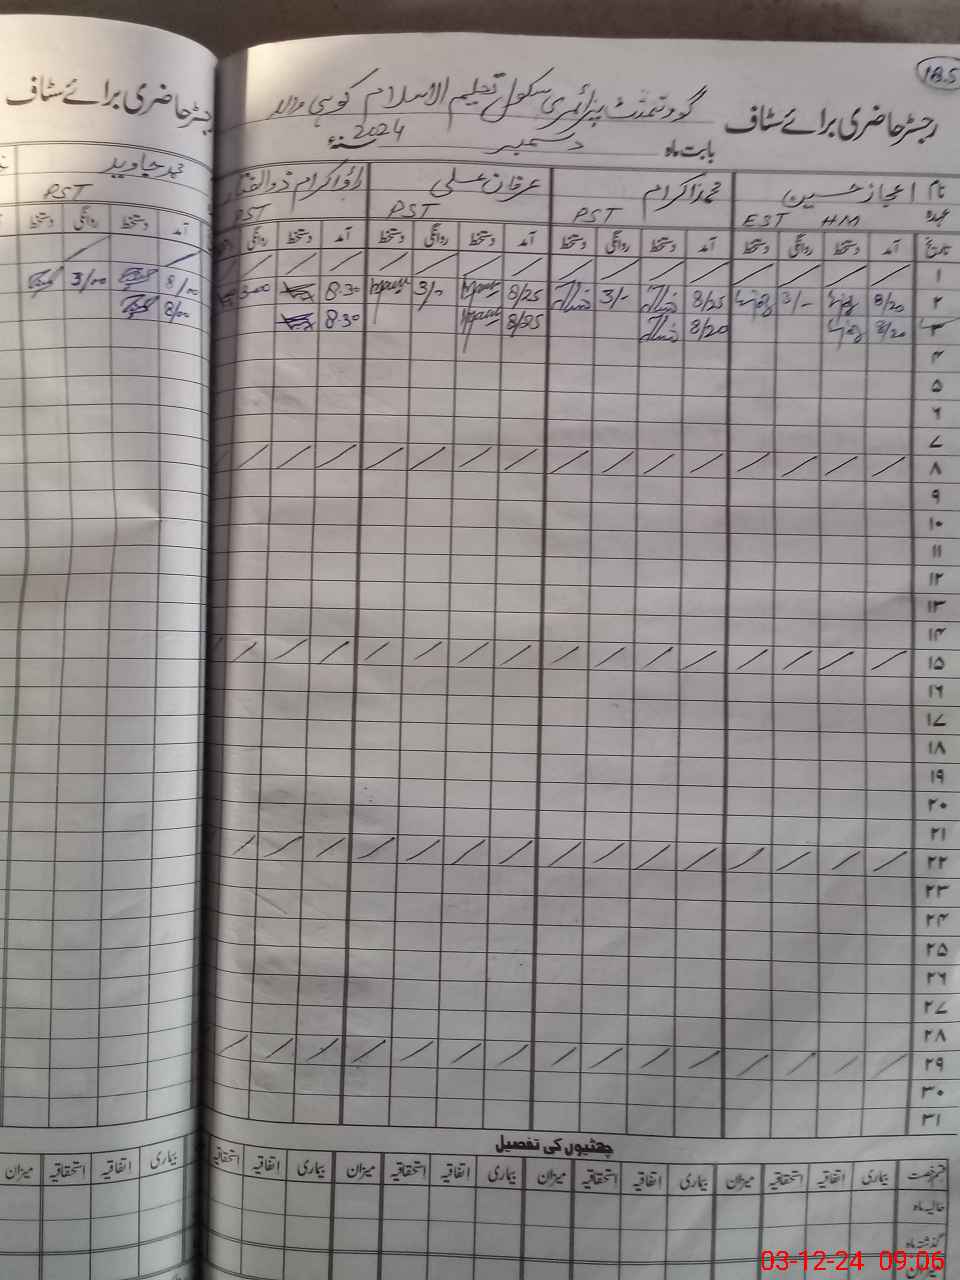 185
رجسٹر حاضری برائے سٹاف
گورنمنٹ پرائمری سکول تعلیم الاسلام
بابت ماہ دسمبر 2024 سنہء
نام اعجاز حسین محمد اکرم عرفان علی راؤ اکرام ذوالفقار
عہدہ EST HM PST PST PST
تاریخ آمد دستخط روانگی دستخط آمد دستخط روانگی دستخط آمد دستخط روانگی دستخط آمد دستخط روانگی
۱
۲ 8/20 3/- 8/25 3/- 8/25 3/- 8-30 3-00
۳ 8/20 8/20 8/25 8-30
۴
۵
۶
۷
۸
۹
۱۰
۱۱
۱۲
۱۳
۱۴
۱۵
۱۶
۱۷
۱۸
۱۹
۲۰
۲۱
۲۲
۲۳
۲۴
۲۵
۲۶
۲۷
۲۸
۲۹
۳۰
۳۱
چھٹیوں کی تفصیل
قسم رخصت بیماری اتفاقیہ استحقاقیہ میزان بیماری اتفاقیہ استحقاقیہ میزان بیماری اتفاقیہ استحقاقیہ میزان بیماری اتفاقیہ استحقاقیہ
حالیہ ماہ
گذشتہ ماہ
میزان
رجسٹر حاضری برائے سٹاف
جاوید
PST
آمد دستخط روانگی دستخط
8/00 3/00
8/00
بیماری اتفاقیہ استحقاقیہ میزان
03-12-24 09:06